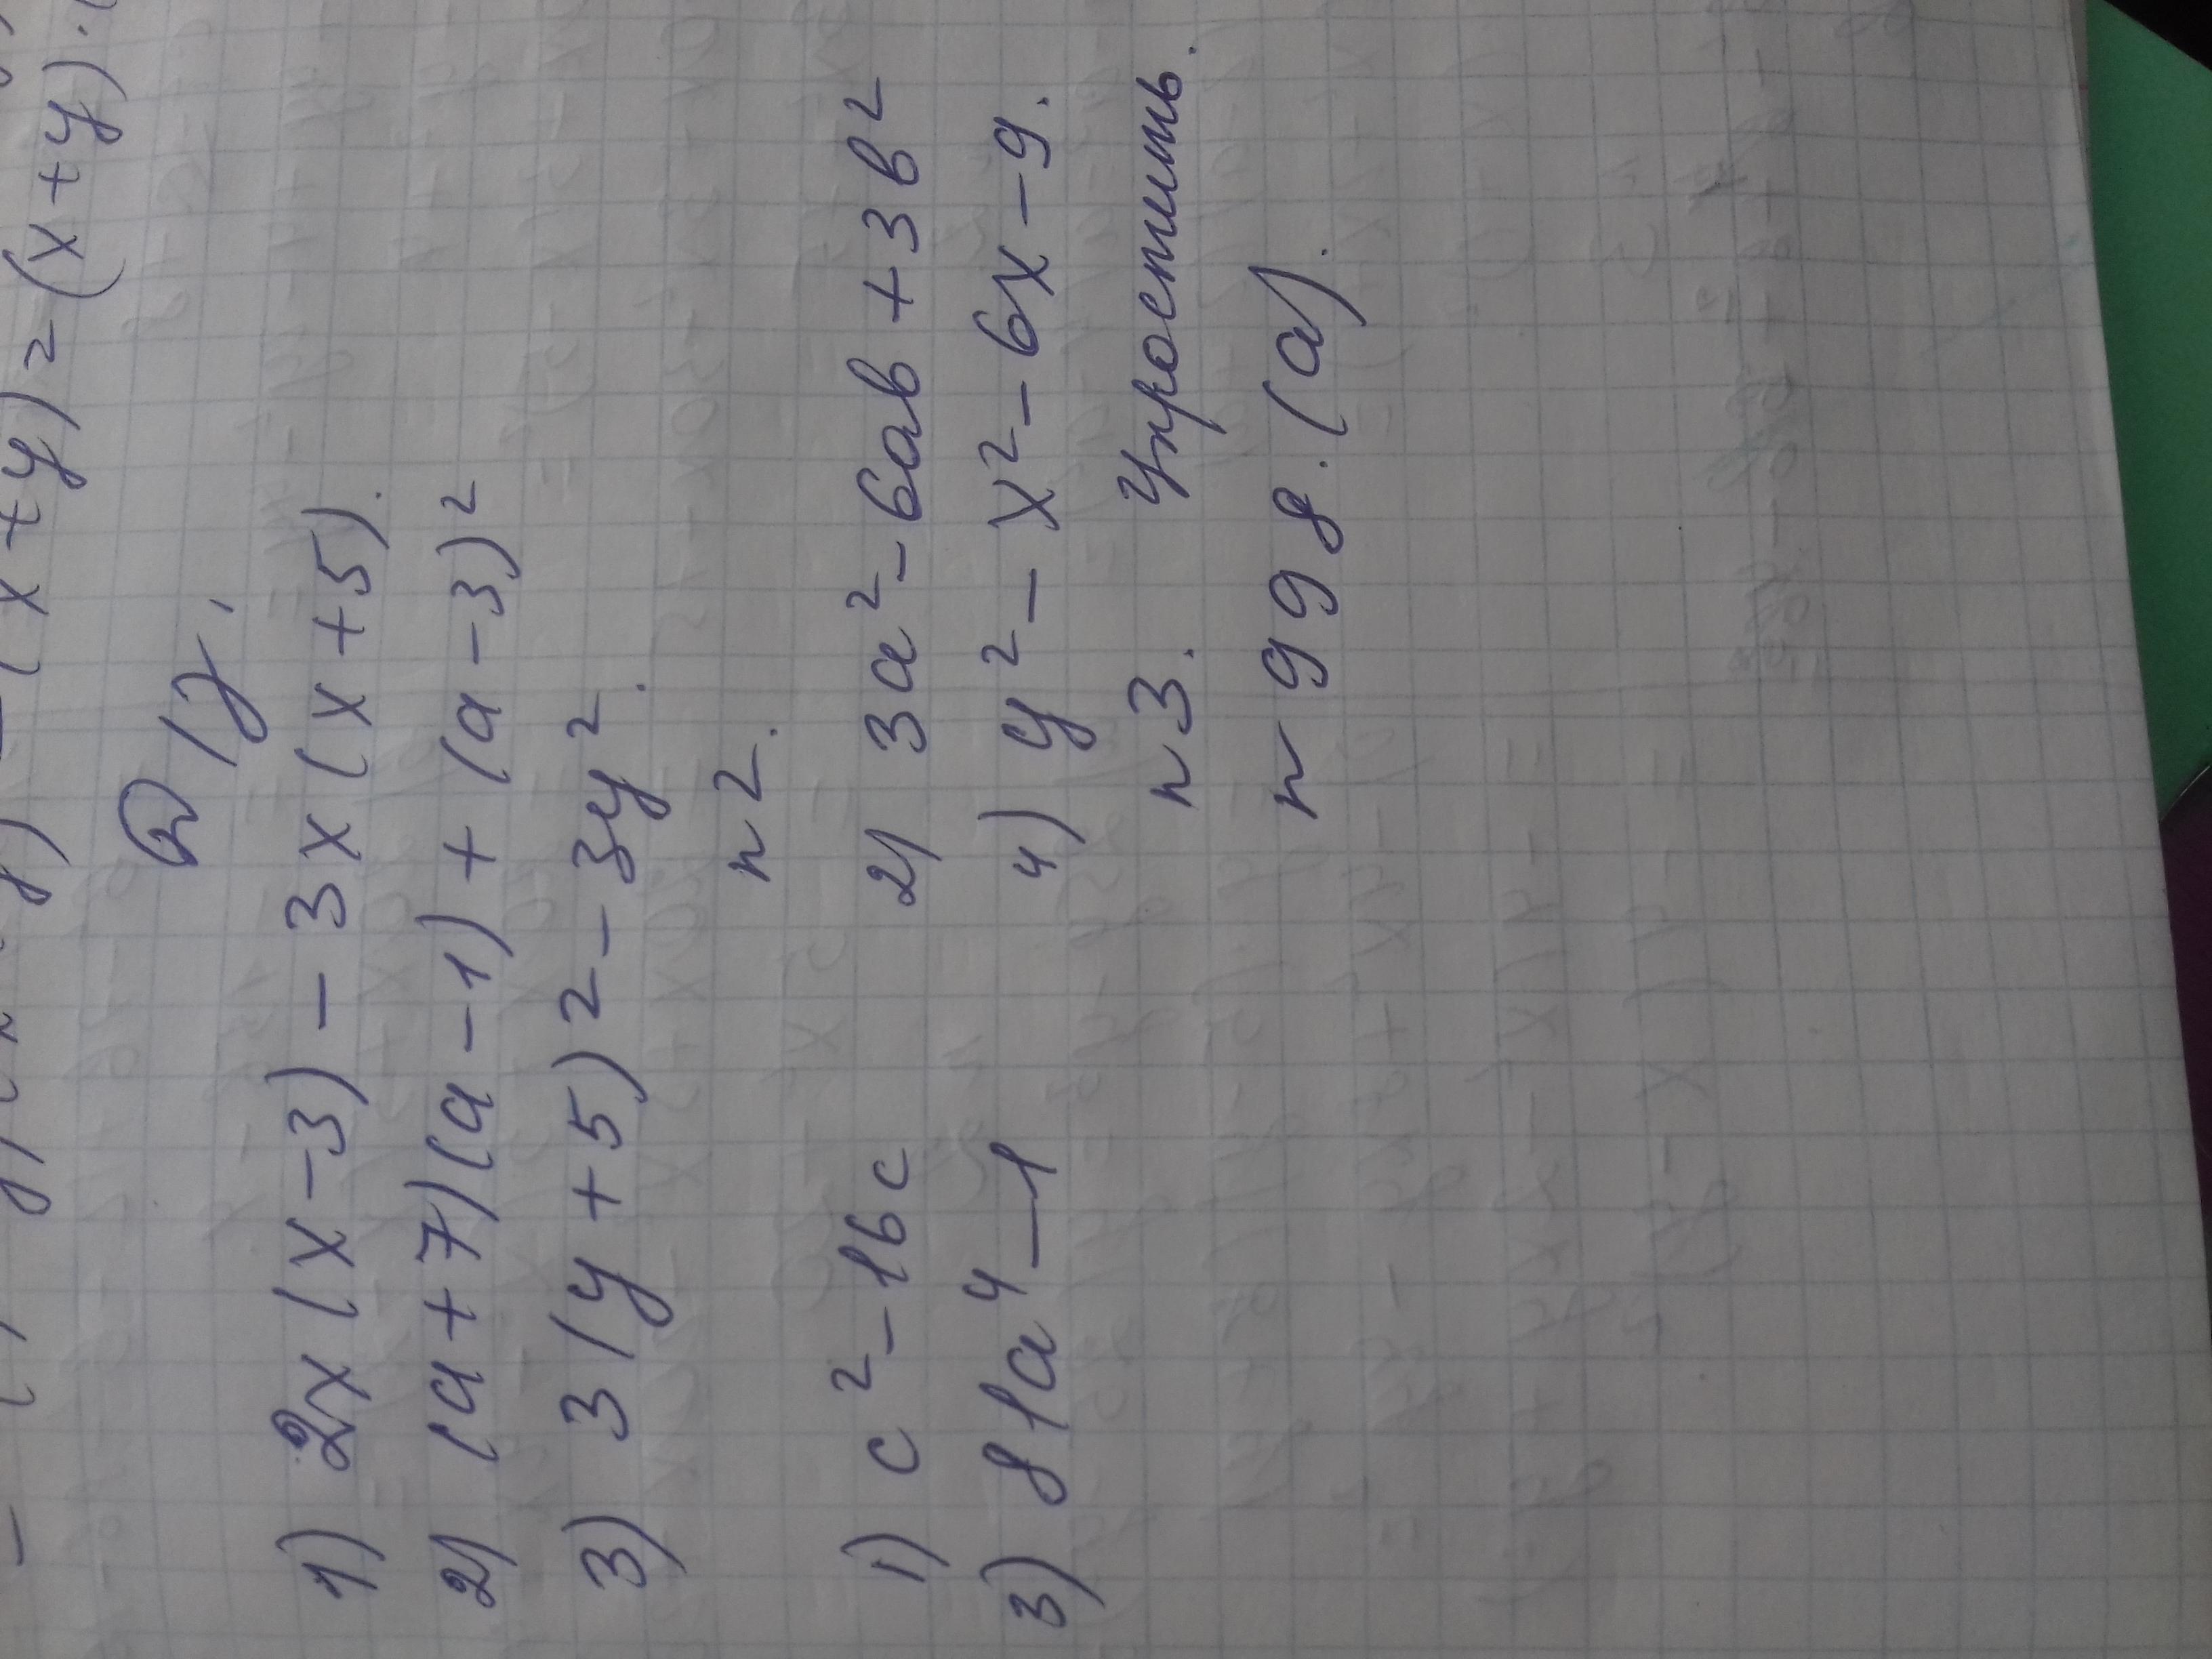 x + y) = (x + y).
D/з.
1) 2x(x - 3) - 3x(x + 5).
2) (a + 7)(a - 1) + (a - 3)²
3) 3(y + 5)2 - 3y².
n2.
1) c² - 16c 2) 3a² - 6ab + 3b²
3) 81a⁴ - 1 4) y² - x² - 6x - 9.
n3. Упростить.
n998.(a).